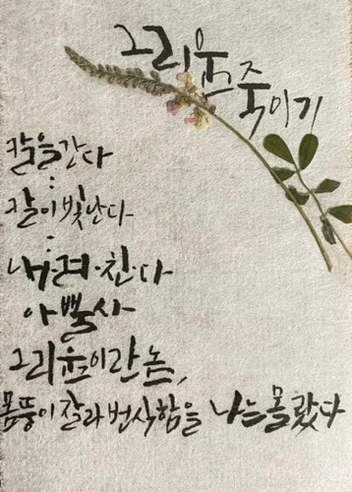 그리움 죽이기
칼을 간다
:
칼이 빛난다
:
내·려·친·다
아뿔사
그리움이란 놈,
몸뚱이 잘라 번식함을 나는 몰랐다